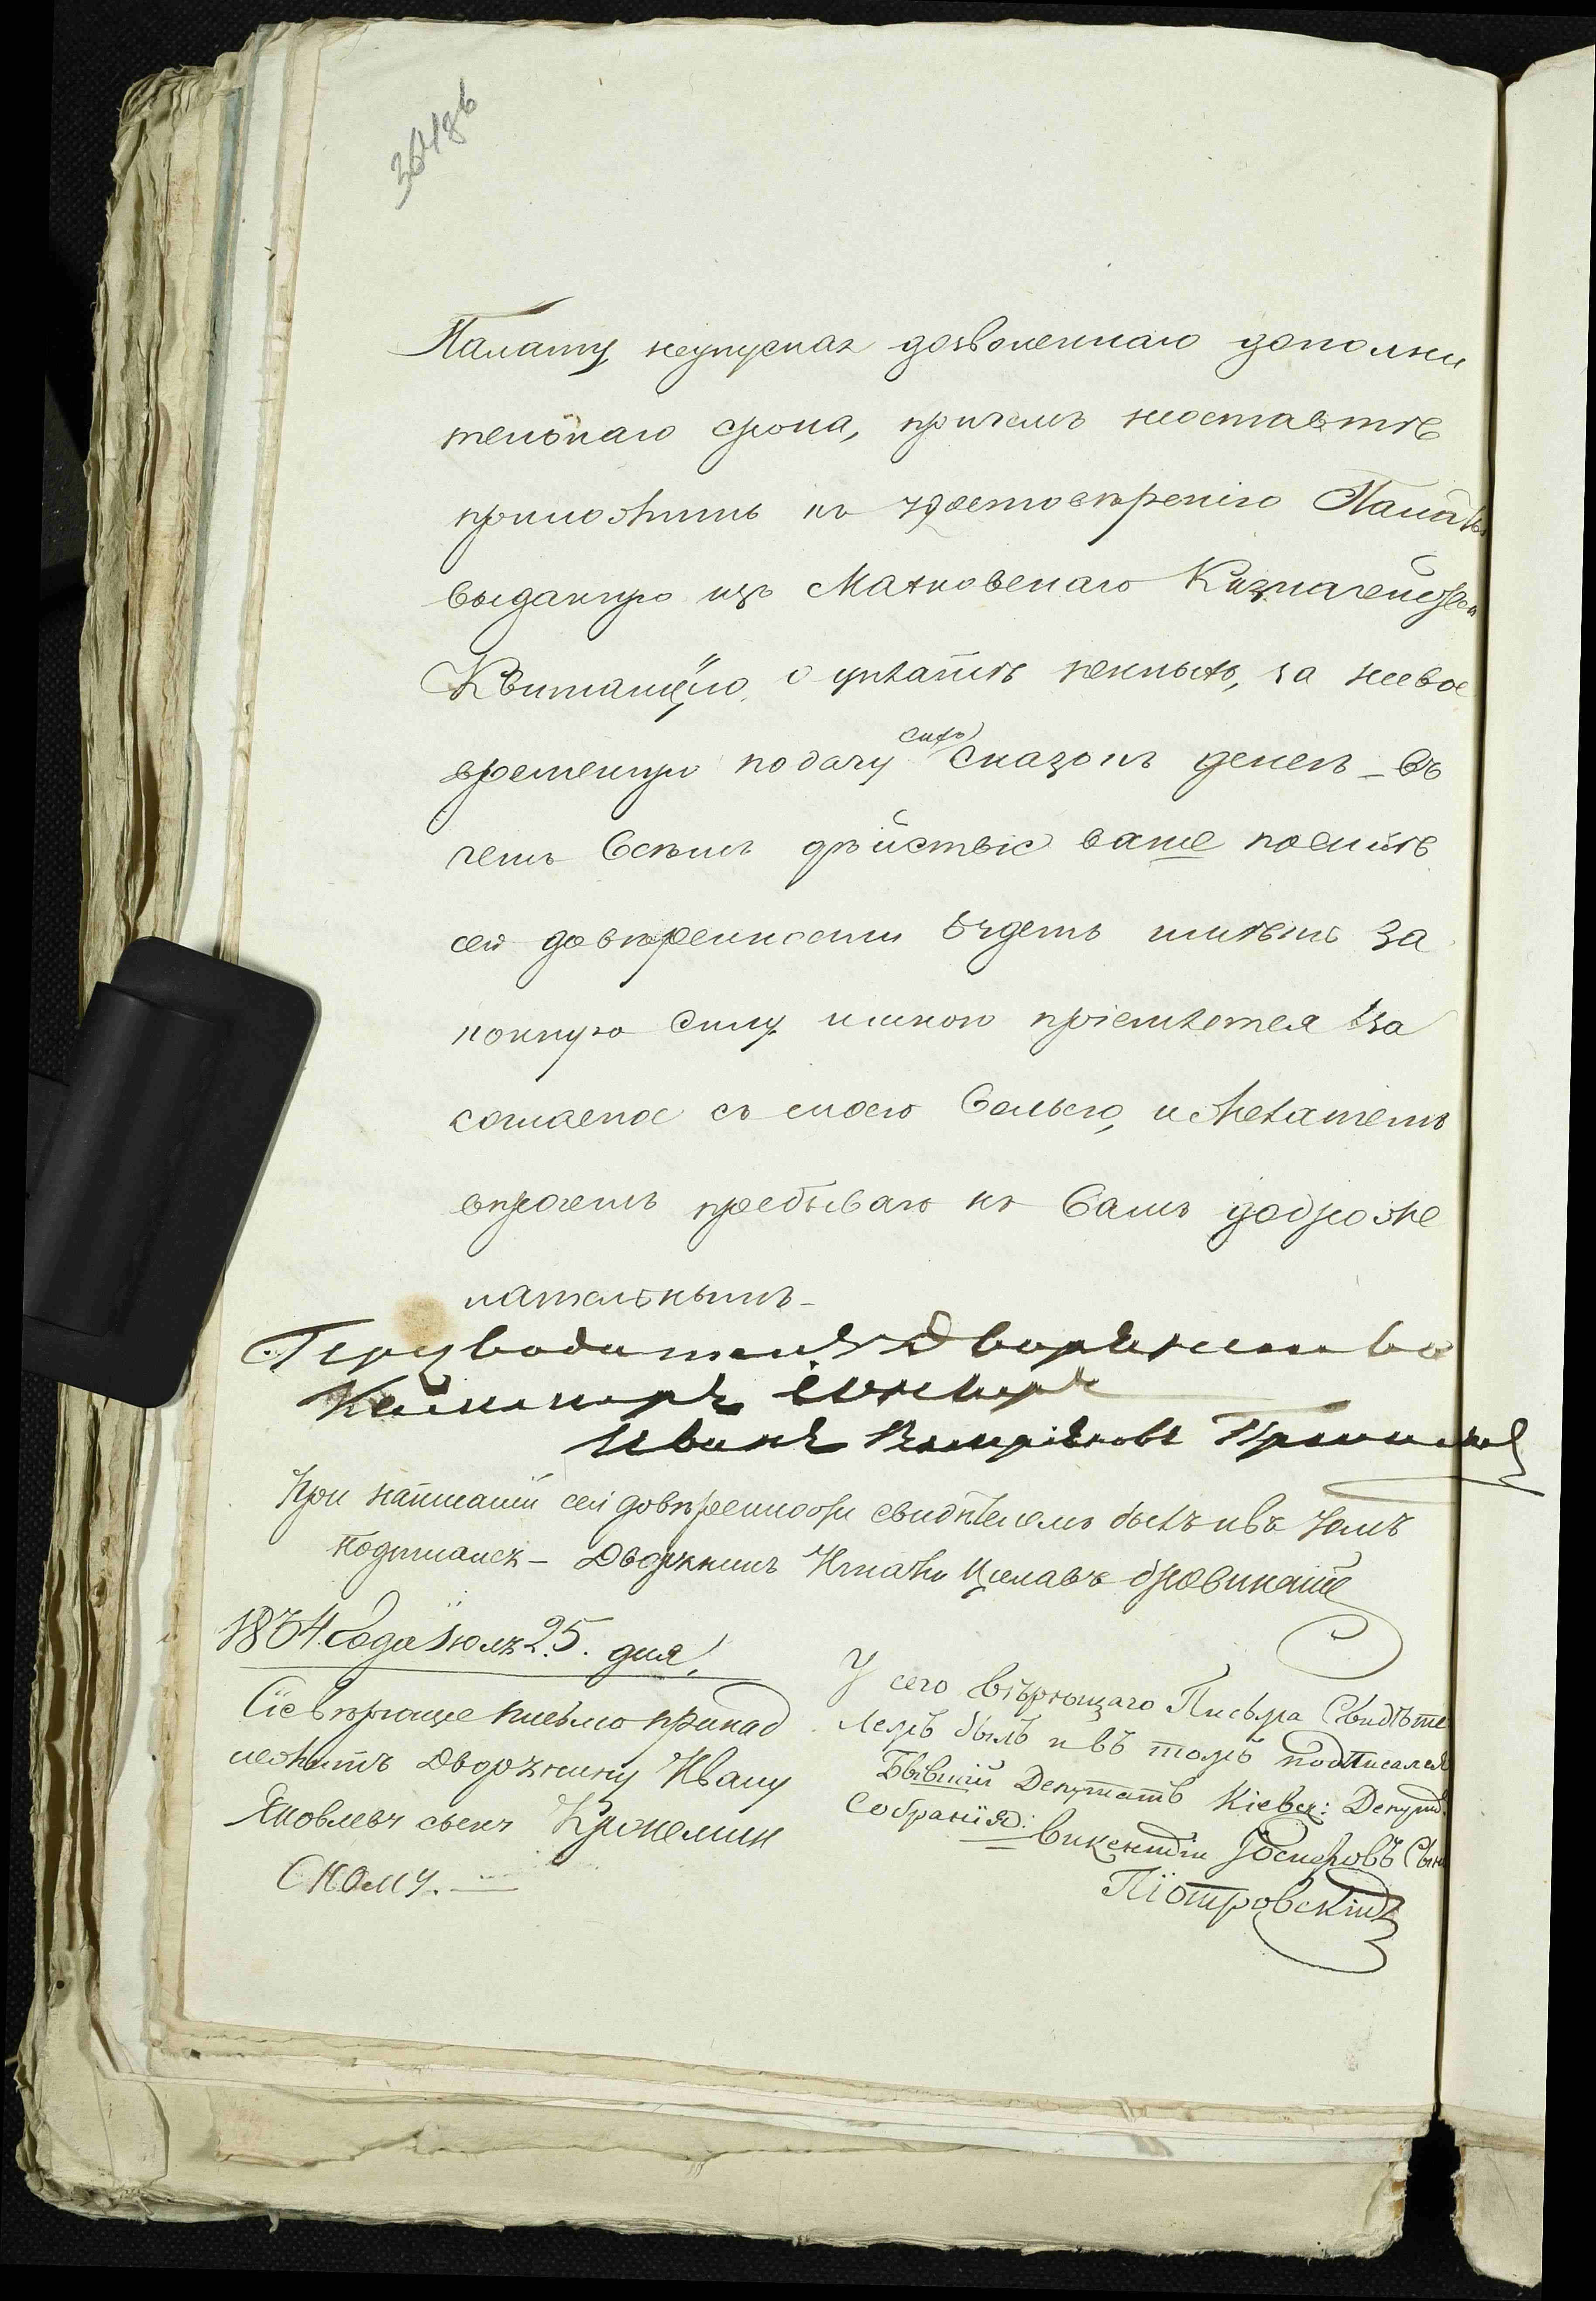 364 зв
Палату, неупуская дозволеннаго дополни
тельнаго срока, причемъ неоставте
приложить къ удостовѣренію Палаты
выданную изъ Махновскаго Казначейства
Квитанцію, о уплатѣ пенныхъ, за невое
временную подачу сихъ Сказокъ денегъ – въ
чемъ Всѣмъ дѣйствіе ваше посилѣ
сей довѣренности будетъ имѣть за
конную Силу и мною пріемлется за
согласное съ моею Волею, и
впрочемъ пребываю къ Вамъ доброже
лательнымъ –
Дворянства
Юнкеръ
Иванъ
При написаніи сей довѣренности свидѣтелемъ былъ и въ томъ
подписался – Дворянинъ Игнатій
1834. Года Іюля 25. дня,
Сіе вѣрющее письмо принад
лежитъ Дворянину Ивану
Яковлеву сыну
скому. —
У сего вѣрющаго Письма Свидѣте
лемъ былъ и въ томъ подписался
Бывшій Депутатъ Кіевск: Депут:
Собранія: Викентій Іосифовъ Сынъ
Піотровскій